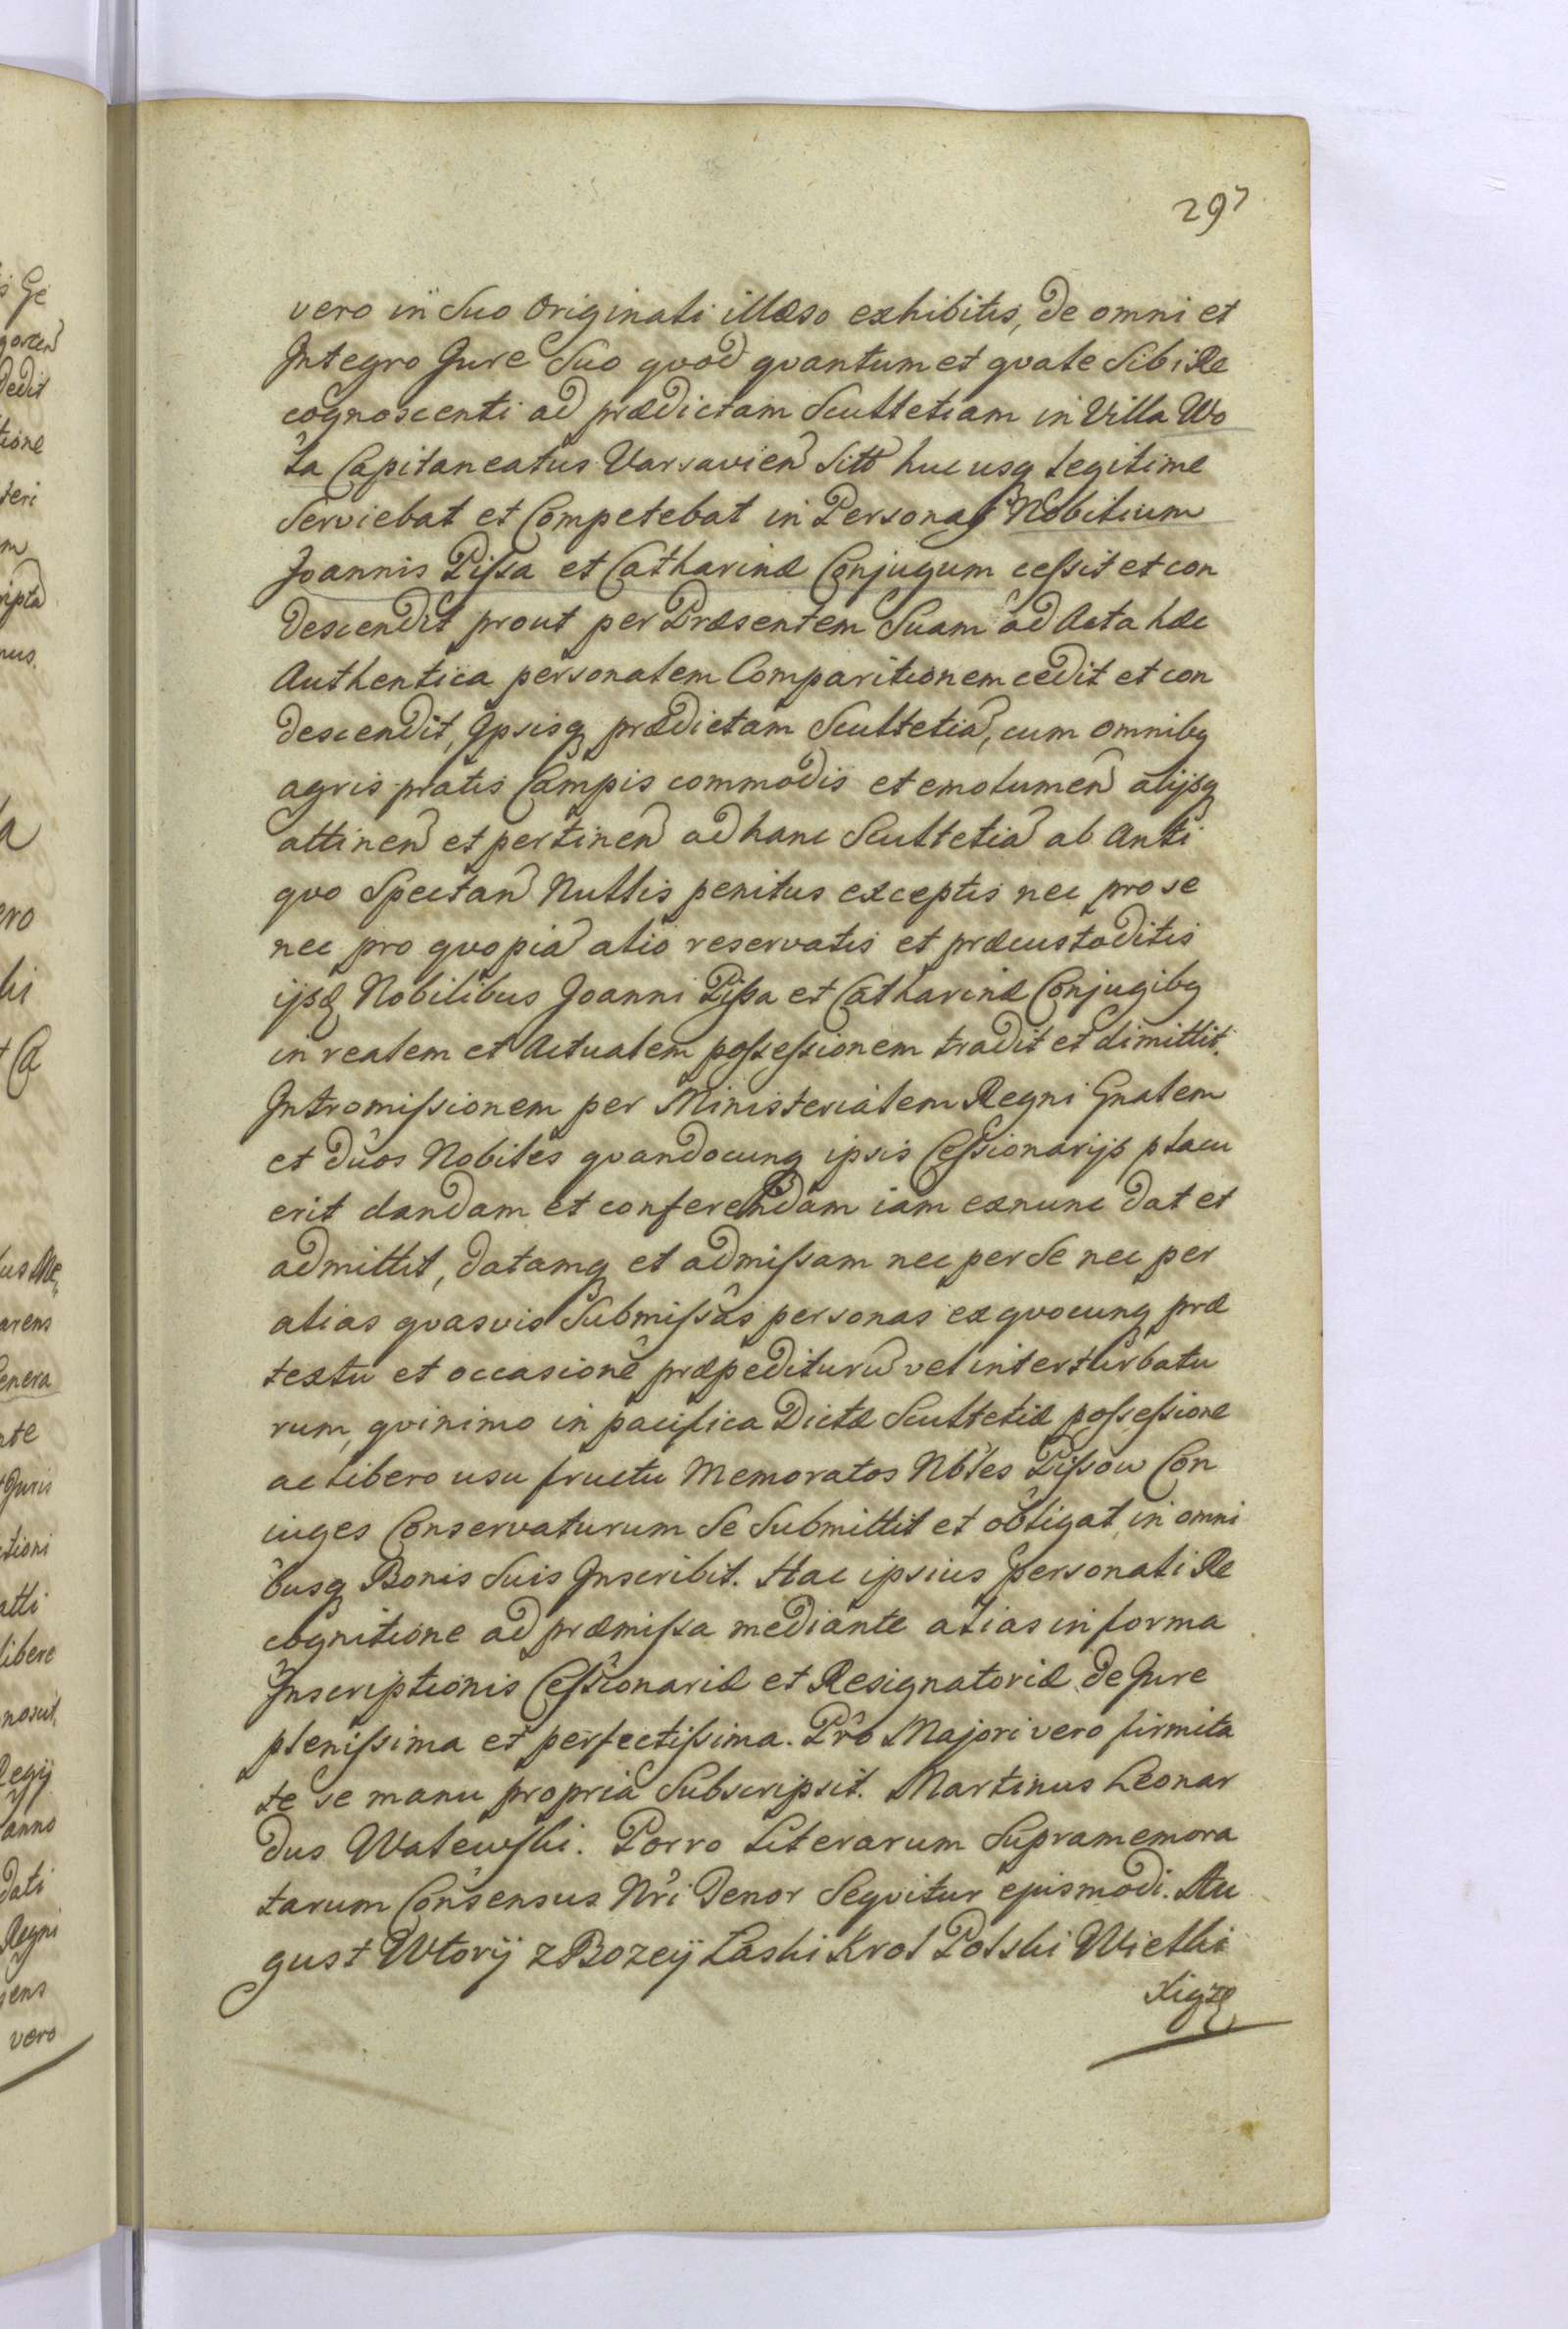 297
vero in Suo Originali illæso exhibitis, de omni et
Integro Jure Suo qvod qvantum et qvale Sibi Re
cognoscenti ad prædictam Scultetiam in Villa Wo
la Capitaneatus Varsavien Sitt huc usq legitime
Serviebat et Competebat in Personas Nobilium
Joannis Pissa et Catharinæ Conjugum cessit et con
descendit prout per Præsentem Suam ad Acta hæc
Authentica personalem Comparitionem cedit et con
descendit, Ipsisq prædictam Scultetia, cum omnibq
agris pratis Campis commodis et emolumen alijsq
attinen et pertinen ad hanc Scultetia ab Anti
qvo Spectan Nullis penitus exceptis nec pro se
nec pro qvopia alio reservatis et præcustoditis
ijsq Nobilibus Joanni Pissa et Catharinæ Conjugibq
in realem et Actualem possessionem tradit et dimittit.
Intromissionem per Ministerialem Regni Gnalem
et duos Nobiles qvandocunq ipsis Cessionarijs placu
erit dandam et conferendam iam exnunc dat et
admittit, datamq et admissam nec per Se nec per
alias qvasvis Submissas personas ex qvocunq præ
textu et occasione præpedituru vel interturbatu
rum, qvinimo in pacifica Dictæ Scultetiæ possessione
ac libero usu fructu Memoratos Nbles Pissow Con
iuges Conservaturum Se Submittit et obligat, in omni
busq Bonis Suis Inscribit. Hac ipsius personali Re
cognitione ad præmissa mediante alias in forma
Inscriptionis Cessionariæ et Resignatoriæ de Jure
plenissima et perfectissima. Pro Majori vero firmita
te se manu propria Subscripsit. Martinus Leonar
dus Walewski. Porro Literarum Supramemora
tarum Consensus Nri Tenor Seqvitur ejusmodi. Au
gust Wtorÿ z Bozeÿ Łaski Krol Polski Wielki
Xiąze